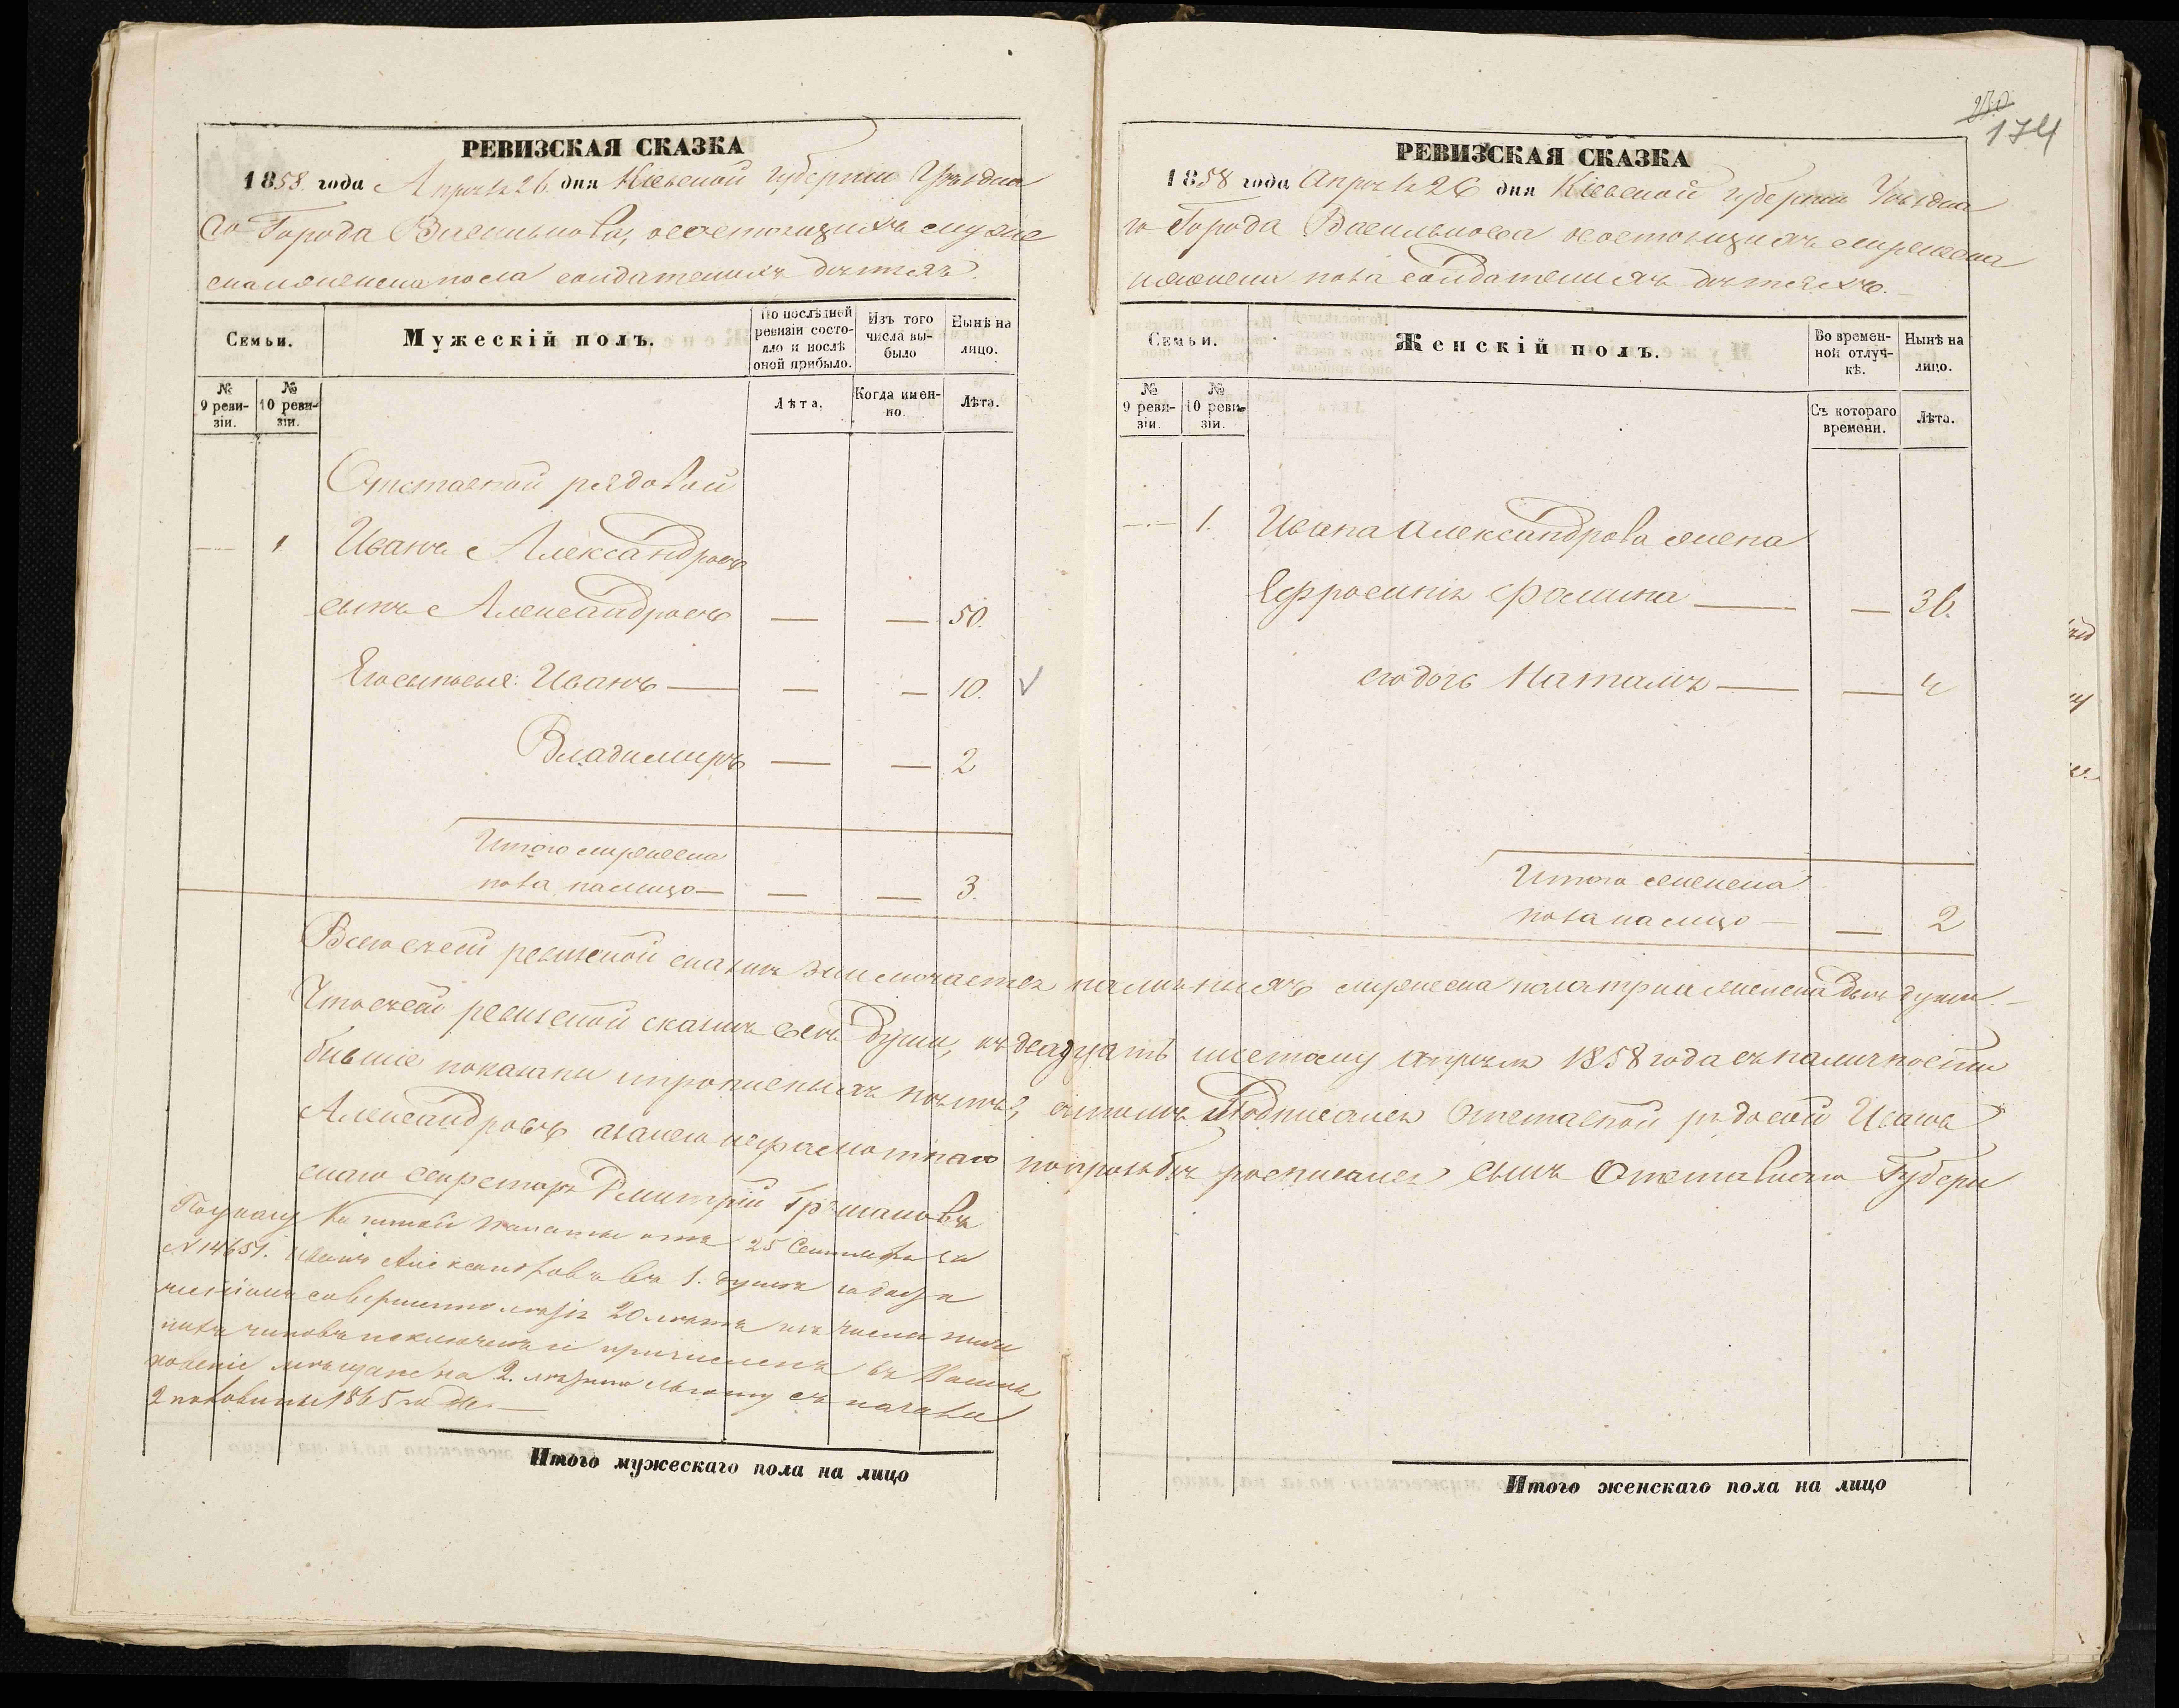 РЕВИЗСКАЯ СКАЗКА
1858 года Апрѣля 26 дня Кіевской Губерніи Уѣздна
го Города Василькова, о состоящихъ муже
скаго и женскаго пола солдатскихъ дѣтяхъ.
Семьи.
Мужескій полъ.
По послѣдней ревизіи состояло и послѣ оной прибыло.
Изъ того числа выбыло
Нынѣ на лицо.
№ 9 ревизіи.
№ 10 ревизіи.
Лѣта.
Когда именно.
Лѣта.
Отставной рядовой
— 1 Иванъ Александровъ
сынъ Александровъ — — 50.
Его сыновья: Иванъ — — — 10. √
Владимиръ — — 2
Итого мужеска
пола на лицо — — — 3.
230
174
РЕВИЗСКАЯ СКАЗКА
1858 года Апрѣля 26 дня Кіевской Губерніи Уѣздна
го Города Василькова о состоящихъ мужеска
и женска пола солдатскихъ дѣтяхъ.—
Семьи.
Женскій полъ.
Во временной отлучкѣ.
Нынѣ на лицо.
№ 9 ревизіи.
№ 10 ревизіи.
Съ котораго времени.
Лѣта.
— 1. Ивана Александрова жена
Ефросинія Фомина — — 36.
его дочь Наталія — — 4
Итого женска
пола на лицо — — 2
Всего въ сей ревизской сказкѣ заключается наличныхъ мужеска пола три и женска двѣ души.—
Что въ сей ревизской сказкѣ всѣ души, къ двадцать шестому Апрѣля 1858 года въ наличности
бывшіе показаны и прописныхъ нѣтъ, въ томъ и подписался Отставной рядовой Иванъ
Александровъ а за него неграмотнаго по прозьбѣ росписался сынъ Отставнаго Губерн
скаго Секретаря Дмитрій
По указу Казенной Палаты отъ 25 Сентября за
№ 14651. Иванъ Александровъ въ 1. душѣ за
совершеннолѣтія 20 лѣтъ изъ числа ниж
нихъ чиновъ исключенъ и причисленъ въ
мѣщане на 2. лѣтнюю льготу съ начала
2 половины 1865 года.—
Итого мужескаго пола на лицо
Итого женскаго пола на лицо